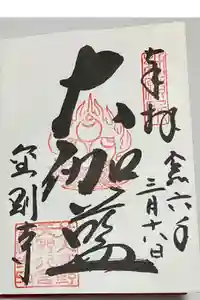 奉拝
令六年
三月十六日
大伽藍
金剛寺